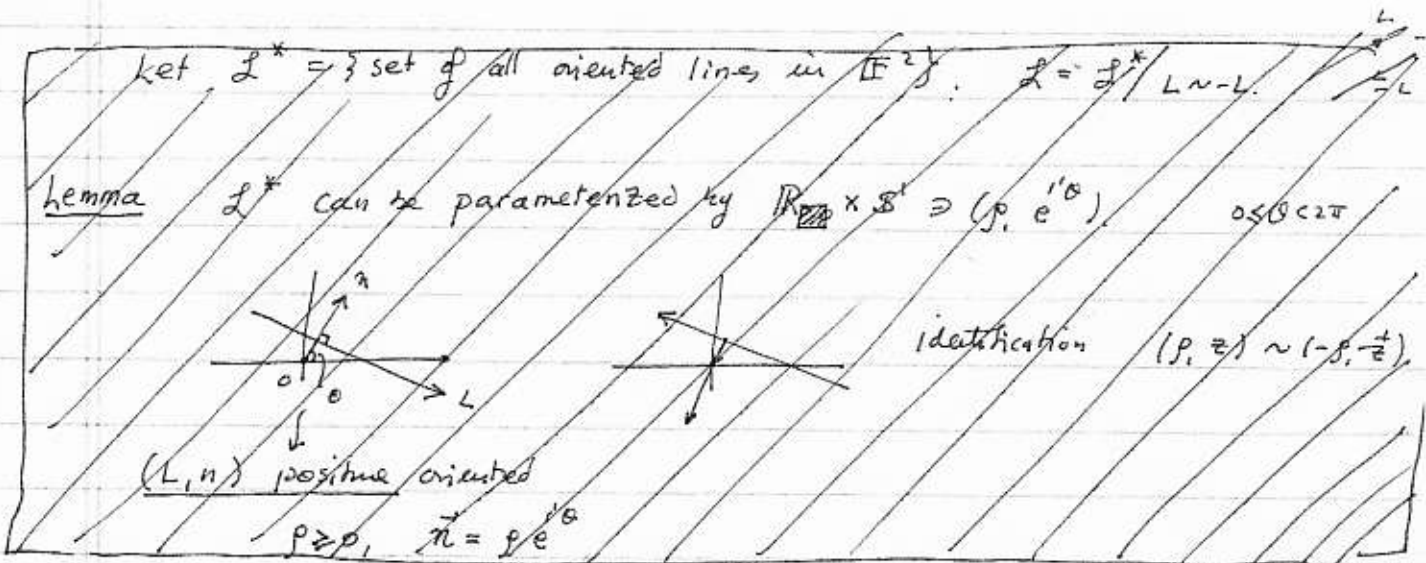 Let 𝓛* = { set of all oriented lines in 𝔼² }. 𝓛 = 𝓛* / L ~ -L.
L
-L
Lemma 𝓛* can be parameterized by ℝ × 𝕊¹ ∋ (ρ, e^{iθ}). 0 ≤ θ < 2π
n
O θ L
identification (ρ, z) ~ (-ρ,
(L, n) positive oriented
ρ ≥ 0, n⃗ = ρ e^{iθ}